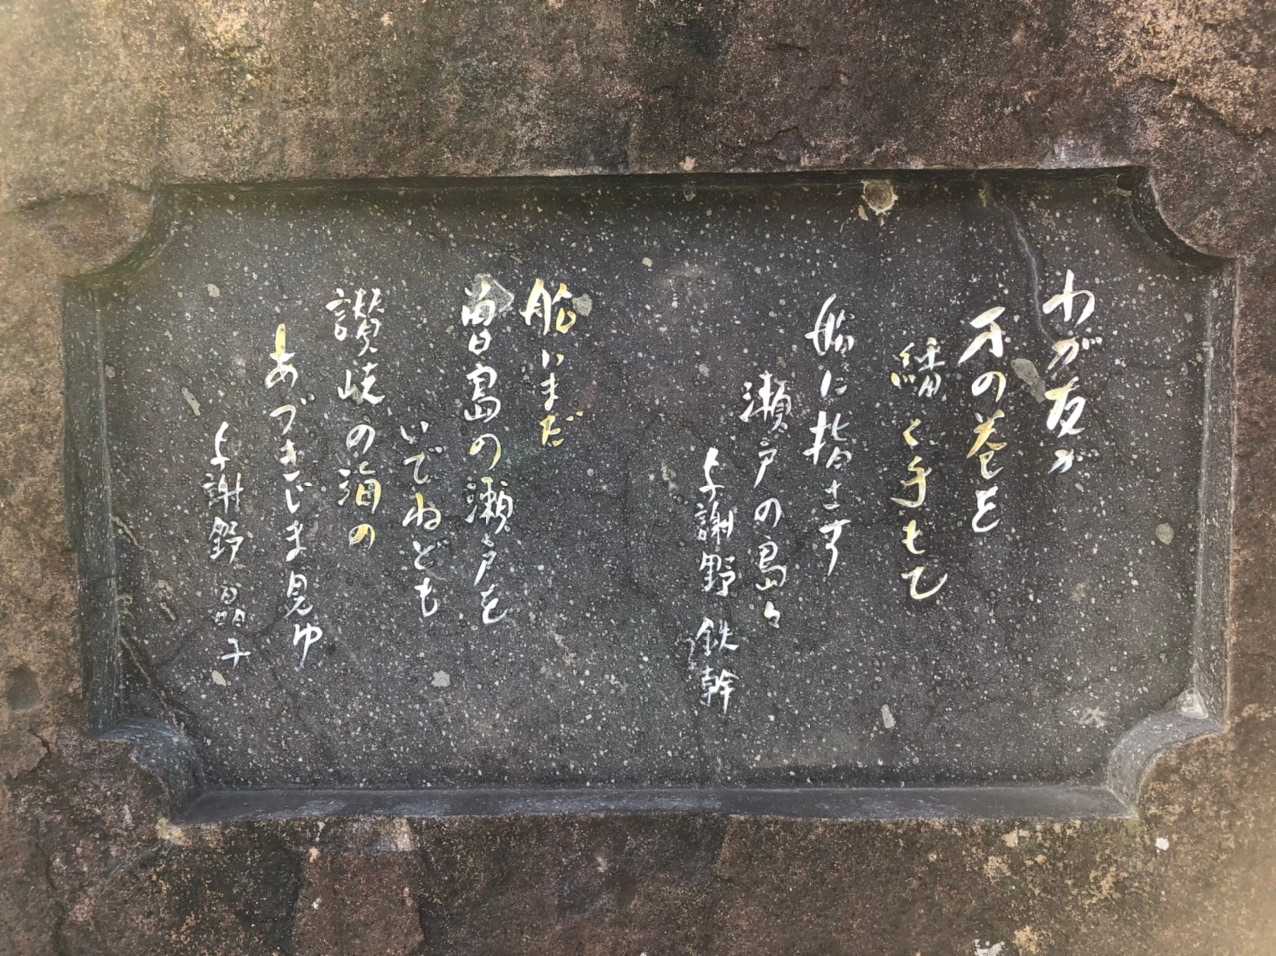 わが友が
不の巻を
繙く手もて
船に指さす
瀬戸の島々
与謝野 鉄幹
船いまだ
豊島の瀬戸を
いでねども
讃岐の海の
あづきじま見ゆ
与謝野 晶子